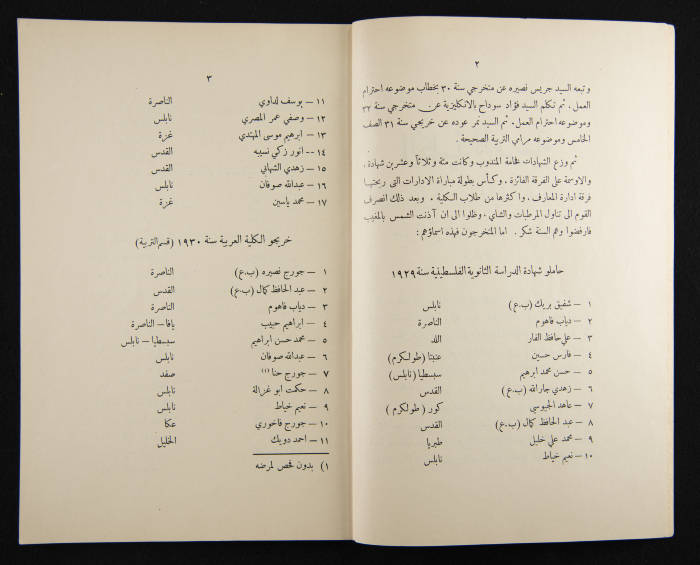 ٢
وتبعه السيد جريس نصيره عن متخرجي سنة ٣٠ بخطاب موضوعه احترام
العمل . ثم تكلم السيد فؤاد سوداح بالانكليزية عن متخرجي سنة ٣٢
وموضوعه احترام العمل . ثم السيد نمر عوده عن خريجي سنة ٣١ الصف
الخامس وموضوعه مرامي التربية الصحيحة .
ثم وزع الشهادات فخامة المندوب وكانت مئة وثلاثاً وعشرين شهادة ،
والاوسمة على الفرقة الفائزة ، وكأس بطولة مباراة الادارات التي ربحتها
فرقة ادارة المعارف ، واكثرها من طلاب الكلية . وبعد ذلك انصرف
القوم الى تناول المرطبات والشاي ، وظلوا الى ان آذنت الشمس بالمغيب
فارفضوا وهم السنة شكر . اما المتخرجون فهذه اسماؤهم :
حاملو شهادة الدراسة الثانوية الفلسطينية سنة ١٩٢٩
١ – شفيق بريك (ب.ع) نابلس
٢ – دياب فاهوم الناصرة
٣ – علي حافظ الفار اللد
٤ – فارس حسين عنبتا (طولكرم)
٥ – حسن محمد ابرهيم سبسطيا (نابلس)
٦ – زهدي جارالله (ب.ع) القدس
٧ – عاهد الجيوسي كور (طولكرم)
٨ – عبد الحافظ كمال (ب.ع) القدس
٩ – محمد علي خليل طبريا
١٠ – نعيم خياط نابلس
٣
١١ – يوسف لداوي الناصرة
١٢ – وصفي عمر المصري نابلس
١٣ – ابرهيم موسى المهتدي غزة
١٤ -- انور زكي نسيبه القدس
١٥ – زهدي الشهابي القدس
١٦ – عبدالله صوفان نابلس
١٧ – محمد ياسين غزة
خريجو الكلية العربية سنة ١٩٣٠ (قسم التربية)
١ – جورج نصيره (ب.ع) الناصرة
٢ – عبد الحافظ كمال (ب.ع) القدس
٣ – دياب فاهوم الناصرة
٤ – ابراهيم حبيب يافا – الناصرة
٥ – محمد حسن ابراهيم سبسطيا – نابلس
٦ – عبدالله صوفان نابلس
٧ – جورج حنا (١) صفد
٨ – حكمت ابو غزالة نابلس
٩ – نعيم خياط نابلس
١٠ – جورج فاخوري عكا
١١ – احمد دويك الخليل
١) بدون فحص لمرضه